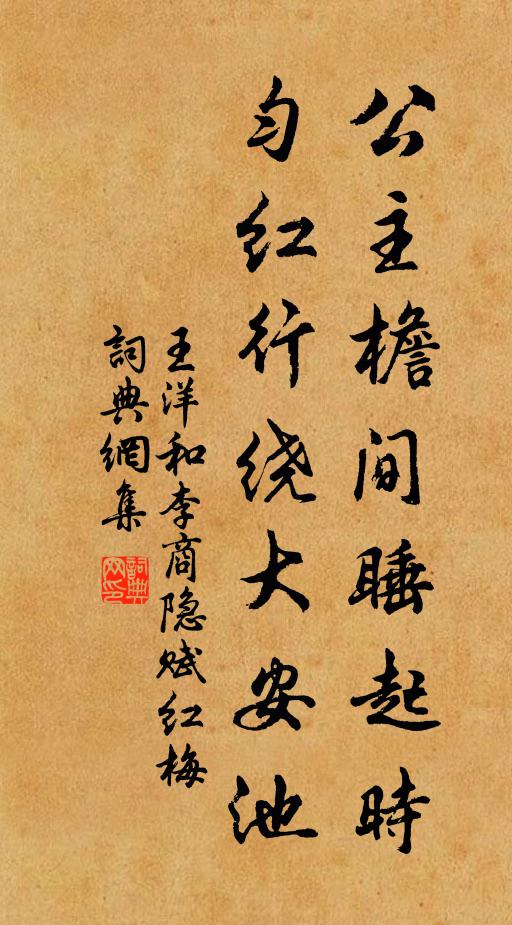 公主檐间睡起時
匀红行绕大安池
王洋和李商隐赋红梅
詞典網集
詞典网印